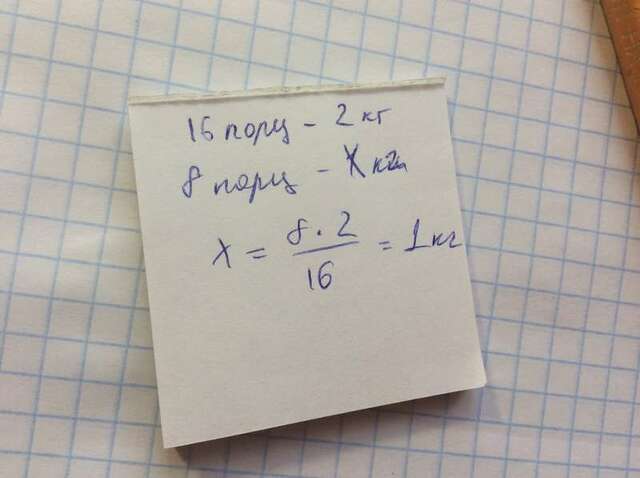 16 порц - 2 кг
8 порц - X кг
X = 8 · 2 / 16 = 1 кг